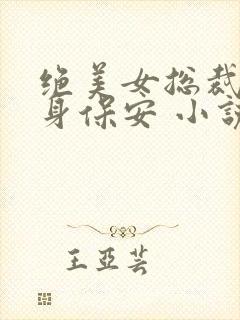 绝美女总裁
身保安 小说
王亚芸